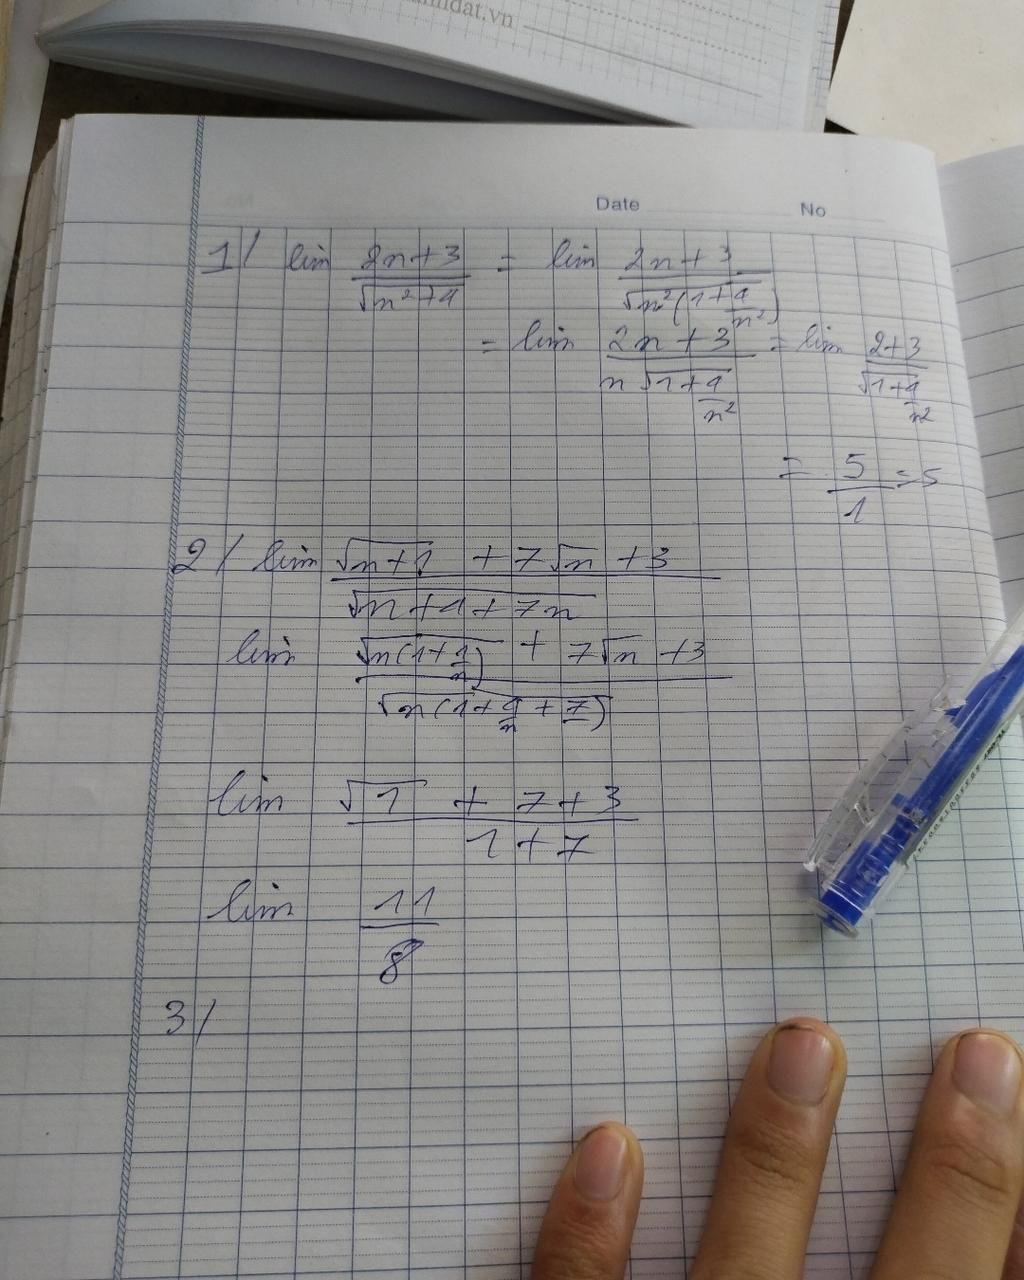 nhdat.vn
Date No
1/ lim (2n+3)/(√(n²+4)) = lim (2n+3)/(√(n²(1+4/n²)))
= lim (2n+3)/(n√(1+4/n²)) = lim (2+3)/(√(1+4/n²))
= 5/1 = 5
2/ lim (√(n+1) + 7√n + 3)/(√(n+4+7n))
lim (√(n(1+1/n)) + 7√n + 3)/(√(n(1+4/n+7)))
lim (√1 + 7+3)/(1+7)
lim 11/8
3/